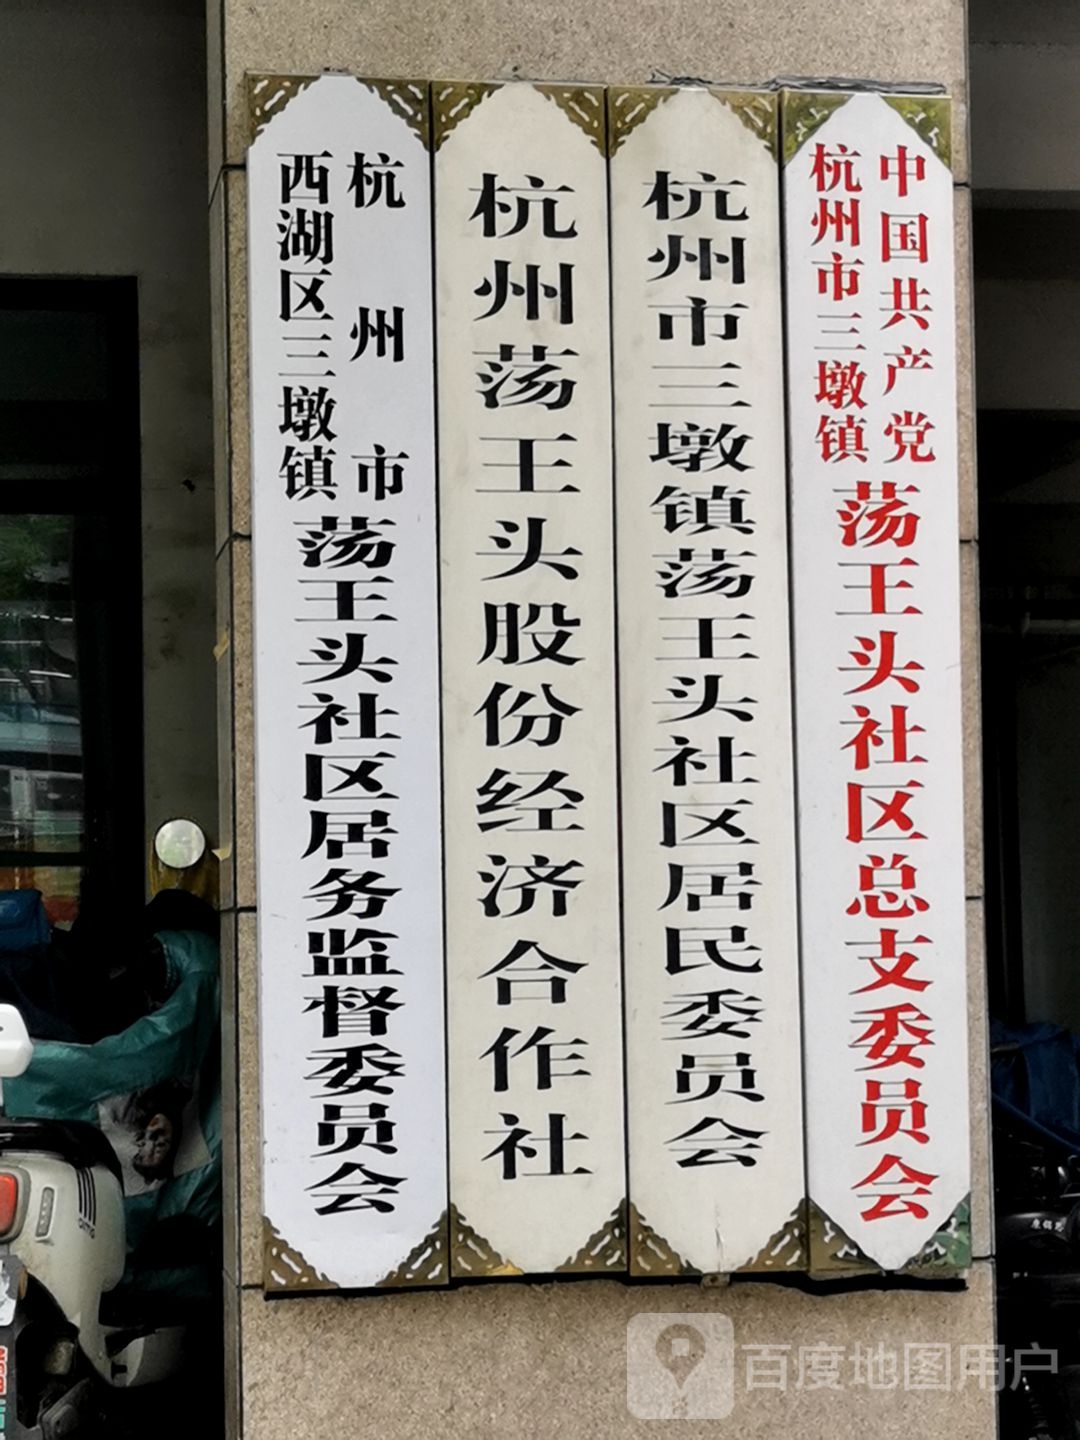 中国共产党
杭州市三墩镇
荡王头社区总支委员会
杭州市三墩镇荡王头社区居民委员会
杭州荡王头股份经济合作社
杭州市
西湖区三墩镇
荡王头社区居务监督委员会
aima
百度地图用户